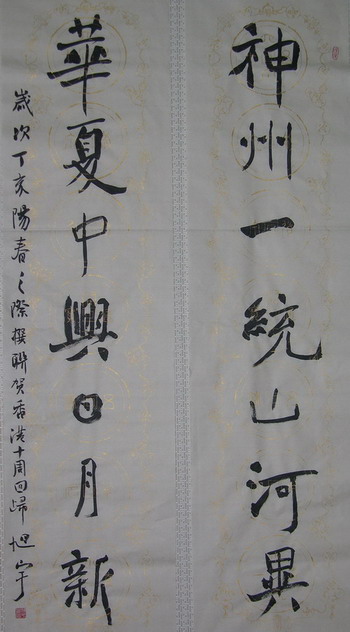 神州一統山河異
華夏中興日月新
歲次丁亥陽春之際撰聯賀香港十周回歸 旭宇